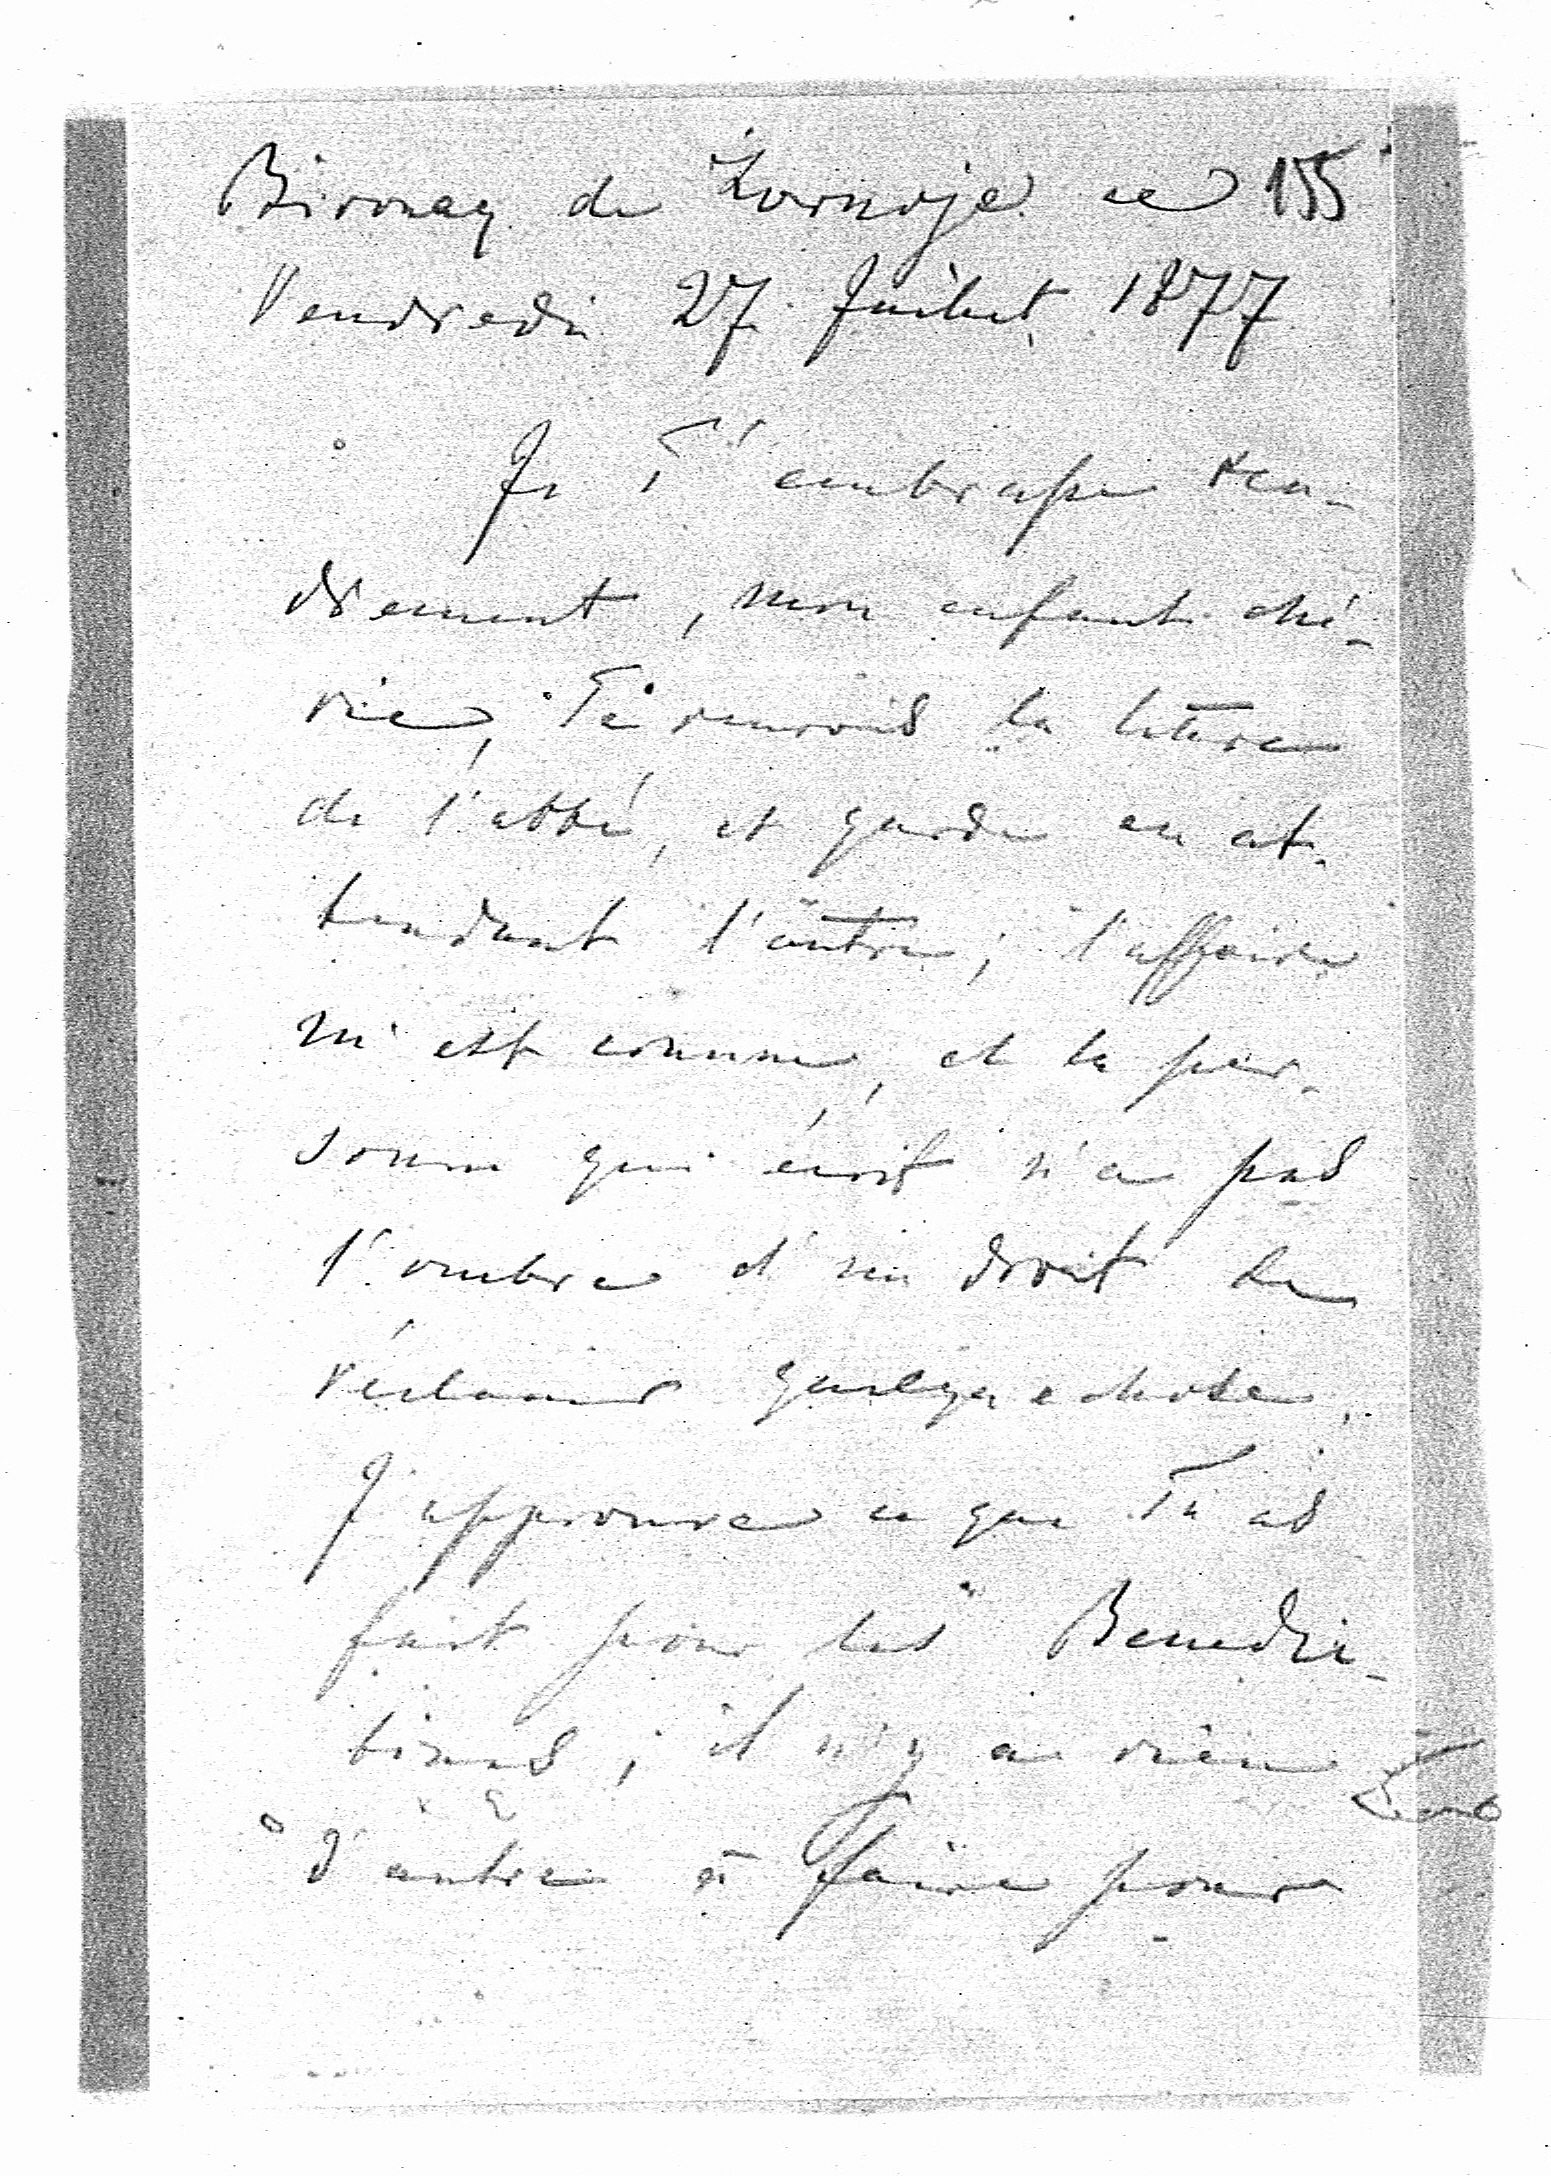 Bivouaq de Kovnoje ce 155
Vendredi 27 Juillet 1877
Je T'embrasse ten-
drement, mon enfant ché-
rie, Te renvois la lettre
de l'abbé, et garde en at-
tendant l'autre; l'affaire
m'est connue, et la per-
sonne qui écrit n'a pas
l'ombre d'un droit de
réclamer quelque chose.
J'approuve ce que Tu as
fait pour les Benedic-
tines; il n'y a rien
d'autre à faire pour